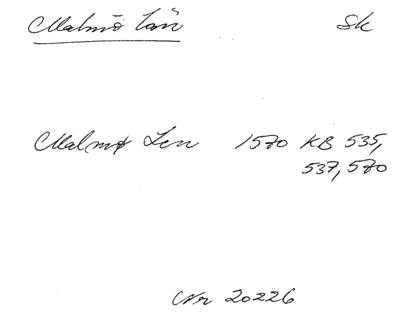 Malmö län Sk
Malmø Len 1570 KB 535,
537, 570
Nr 20226